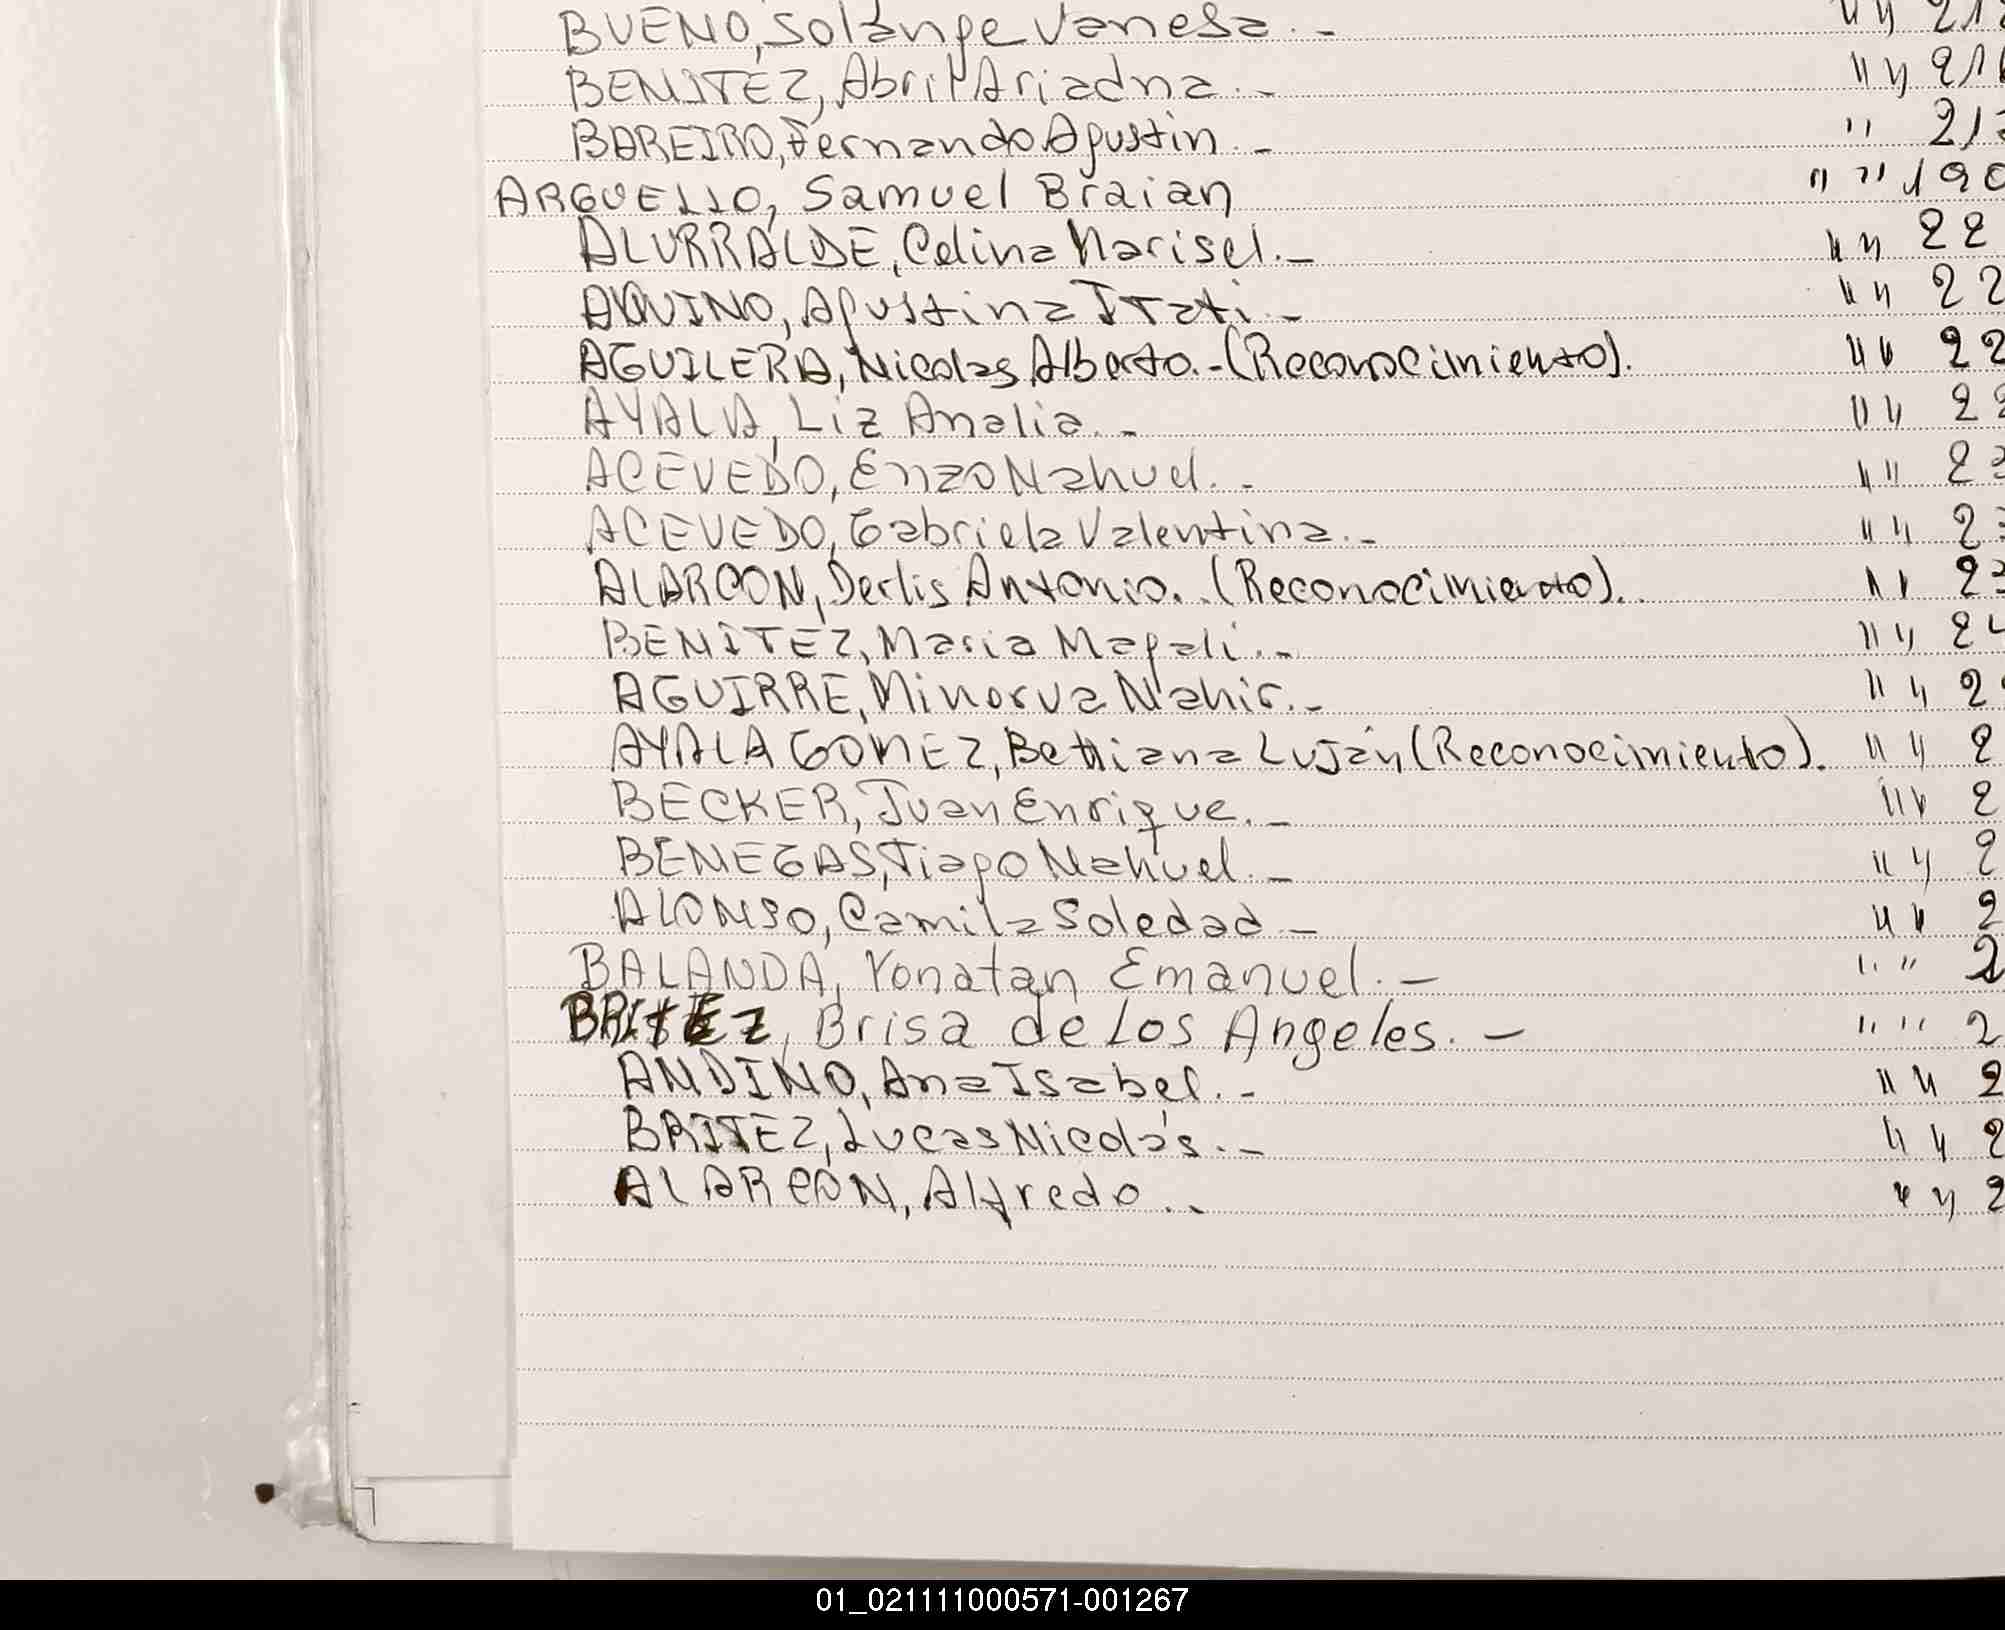 BUENO, Solange Vanesa.-  " " 21
BENITEZ, Abril Ariadna.-  " " 21
BAREIRO, Fernando Agustin.-  " 21
ARGUELLO, Samuel Braian  " " 190
ALURRALDE, Celina Marisel.-  " " 22
AQUINO, Agustina Itati.-  " " 22
AGUILERA, Nicolas Alberto.-(Reconocimiento).  " " 22
AYALA, Liz Analia.-  " " 22
ACEVEDO, Enzo Nahuel.-  " " 23
ACEVEDO, Gabriela Valentina.-  " " 23
ALARCON, Derlis Antonio..(Reconocimiento)..  " " 23
BENITEZ, Maria Magali.-  " " 24
AGUIRRE, Minerva Nahir.-  " " 2
AYALA GOMEZ, Bettiana Luján (Reconocimiento).  " " 2
BECKER, Juan Enrique.-  " " 2
BENEGAS, Tiago Nahuel.-  " " 2
ALONSO, Camila Soledad.-  " " 2
BALANDA, Yonatan Emanuel.-  " " 2
BRITEZ, Brisa de Los Angeles.-  " " 2
ANDINO, Ana Isabel.-  " " 2
BRITEZ, Lucas Nicolás.-  " " 2
ALARCON, Alfredo..  " " 2
01_021111000571-001267